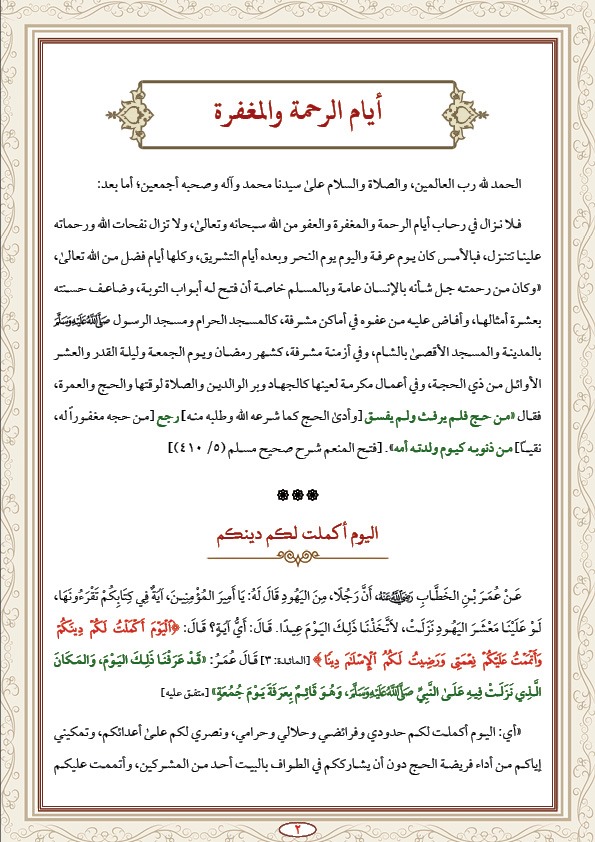 أيام الرحمة والمغفرة
الحمد لله رب العالمين، والصلاة والسلام علىٰ سيدنا محمد وآله وصحبه أجمعين؛ أما بعد:
فلا نزال في رحاب أيام الرحمة والمغفرة والعفو من الله سبحانه وتعالىٰ، ولا تزال نفحات الله ورحماته
علينا تتنزل، فبالأمس كان يوم عرفة واليوم يوم النحر وبعده أيام التشريق، وكلها أيام فضل من الله تعالىٰ،
«وكان من رحمته جل شأنه بالإنسان عامة وبالمسلم خاصة أن فتح له أبواب التوبة، وضاعف حسنته
بعشرة أمثالها، وأفاض عليه من عفوه في أماكن مشرفة، كالمسجد الحرام ومسجد الرسول ﷺ
بالمدينة والمسجد الأقصىٰ بالشام، وفي أزمنة مشرفة، كشهر رمضان ويوم الجمعة وليلة القدر والعشر
الأوائل من ذي الحجة، وفي أعمال مكرمة لعينها كالجهاد وبر الوالدين والصلاة لوقتها والحج والعمرة،
فقال «من حج فلم يرفث ولم يفسق [وأدىٰ الحج كما شرعه الله وطلبه منه] رجع [من حجه مغفوراً له،
نقياً] من ذنوبه كيوم ولدته أمه». [فتح المنعم شرح صحيح مسلم (٥/ ٤١٠)]
اليوم أكملت لكم دينكم
عَنْ عُمَرَ بْنِ الخَطَّابِ رَضِيَ اللَّهُ عَنْهُ، أَنَّ رَجُلًا، مِنَ اليَهُودِ قَالَ لَهُ: يَا أَمِيرَ المُؤْمِنِينَ، آيَةٌ فِي كِتَابِكُمْ تَقْرَءُونَهَا،
لَوْ عَلَيْنَا مَعْشَرَ اليَهُودِ نَزَلَتْ، لَاتَّخَذْنَا ذَلِكَ اليَوْمَ عِيدًا. قَالَ: أَيُّ آيَةٍ؟ قَالَ: ﴿ٱلۡيَوۡمَ أَكۡمَلۡتُ لَكُمۡ دِينَكُمۡ
وَأَتۡمَمۡتُ عَلَيۡكُمۡ نِعۡمَتِي وَرَضِيتُ لَكُمُ ٱلۡإِسۡلَٰمَ دِينٗا﴾ [المائدة: ٣] قَالَ عُمَرُ: «قَدْ عَرَفْنَا ذَلِكَ اليَوْمَ، وَالمَكَانَ
الَّذِي نَزَلَتْ فِيهِ عَلَىٰ النَّبِيِّ ﷺ، وَهُوَ قَائِمٌ بِعَرَفَةَ يَوْمَ جُمُعَةٍ» [متفق عليه]
«أي: اليوم أكملت لكم حدودي وفرائضي وحلالي وحرامي، ونصري لكم علىٰ أعدائكم، وتمكيني
إياكم من أداء فريضة الحج دون أن يشارككم في الطواف بالبيت أحد من المشركين، وأتممت عليكم
٢